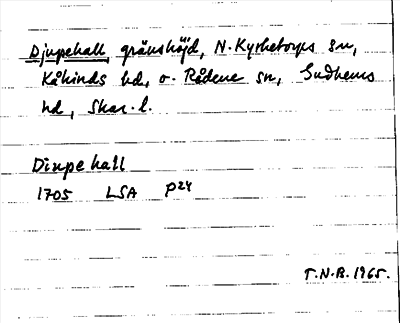 Djupehall, gränshöjd, N. Kyrketorps sn,
Kåkinds hd, o. Rådene sn, Gudhems
hd, Skar. l.
Diupehall
1705 LSA P24
T.N.B. 1965.